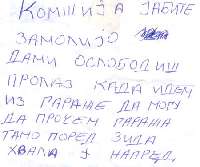 КОМШИЈА ЈАБИТЕ
ЗАМОЛИЈО
ДАМИ ОСЛОБОДИШ
ПРОЛАЗ КАДА ИДЕМ
ИЗ ГАРАЖЕ ДА МОГУ
ДА ПРОЧЕМ ГАРАЖА
ТАМО ПОРЕД ЗИДА
ХВАЛА У НАПРЕД